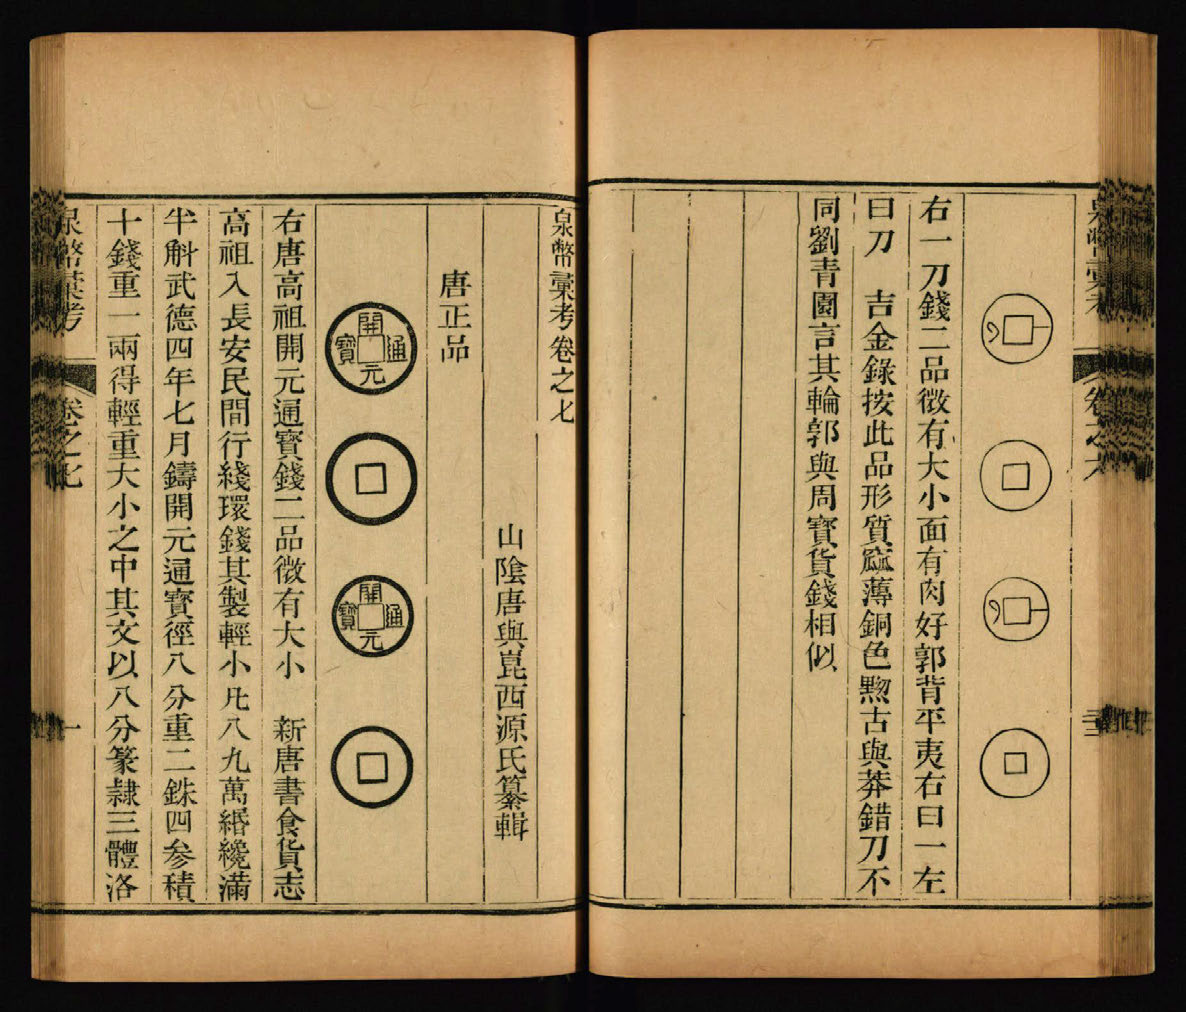 泉幣彙考
卷之六
右一刀錢二品微有大小面有肉好郭背平夷右曰一左
曰刀　吉金錄按此品形質窳薄銅色黝古與莽錯刀不
同劉青園言其輪郭與周寳貨錢相似
泉幣彙考卷之七
山陰唐與崑西源氏纂輯
唐正品
開元通寶
開元通寶
右唐高祖開元通寳錢二品微有大小　新唐書食貨志
高祖入長安民間行綫環錢其製輕小凡八九萬緡纔滿
半斛武德四年七月鑄開元通寳徑八分重二銖四參積
十錢重一兩得輕重大小之中其文以八分篆隷三體洛
泉幣彙考
卷之七
一